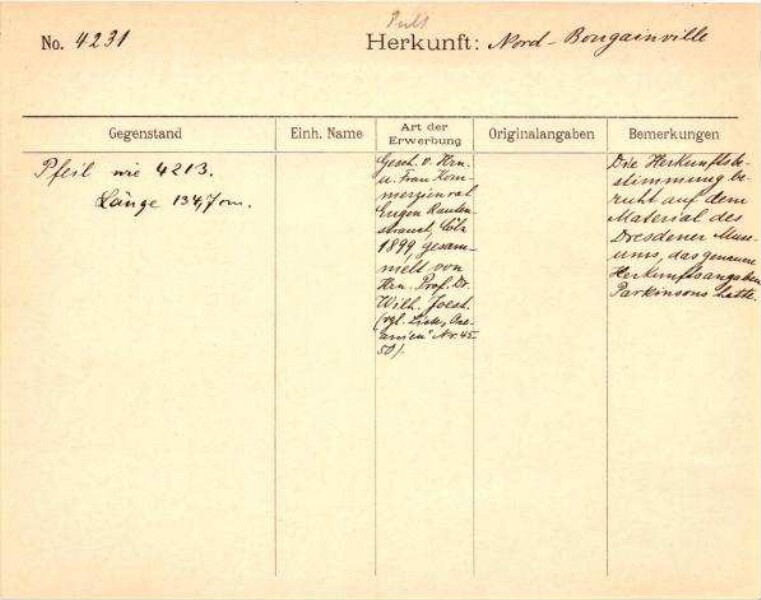 No. 4231
Herkunft: Nord-Bougainville
Gegenstand
Einh. Name
Art der Erwerbung
Originalangaben
Bemerkungen
Pfeil wie 4213.
Länge 134,7 cm.
Gesch. v. Hrn.
u. Frau Kom-
merzienrat
Eugen Rauten-
strauch, Cöln
1899, gesam-
melt von
Hrn. Prof. Dr.
Wilh. Joest.
(vgl. Liste „Oze-
anien" Nr. 45-
50).
Die Herkunftsbe-
stimmung be-
ruht auf dem
Material des
Dresdener Muse-
ums, das genauere
Herkunftsangaben
Parkinsons hatte.